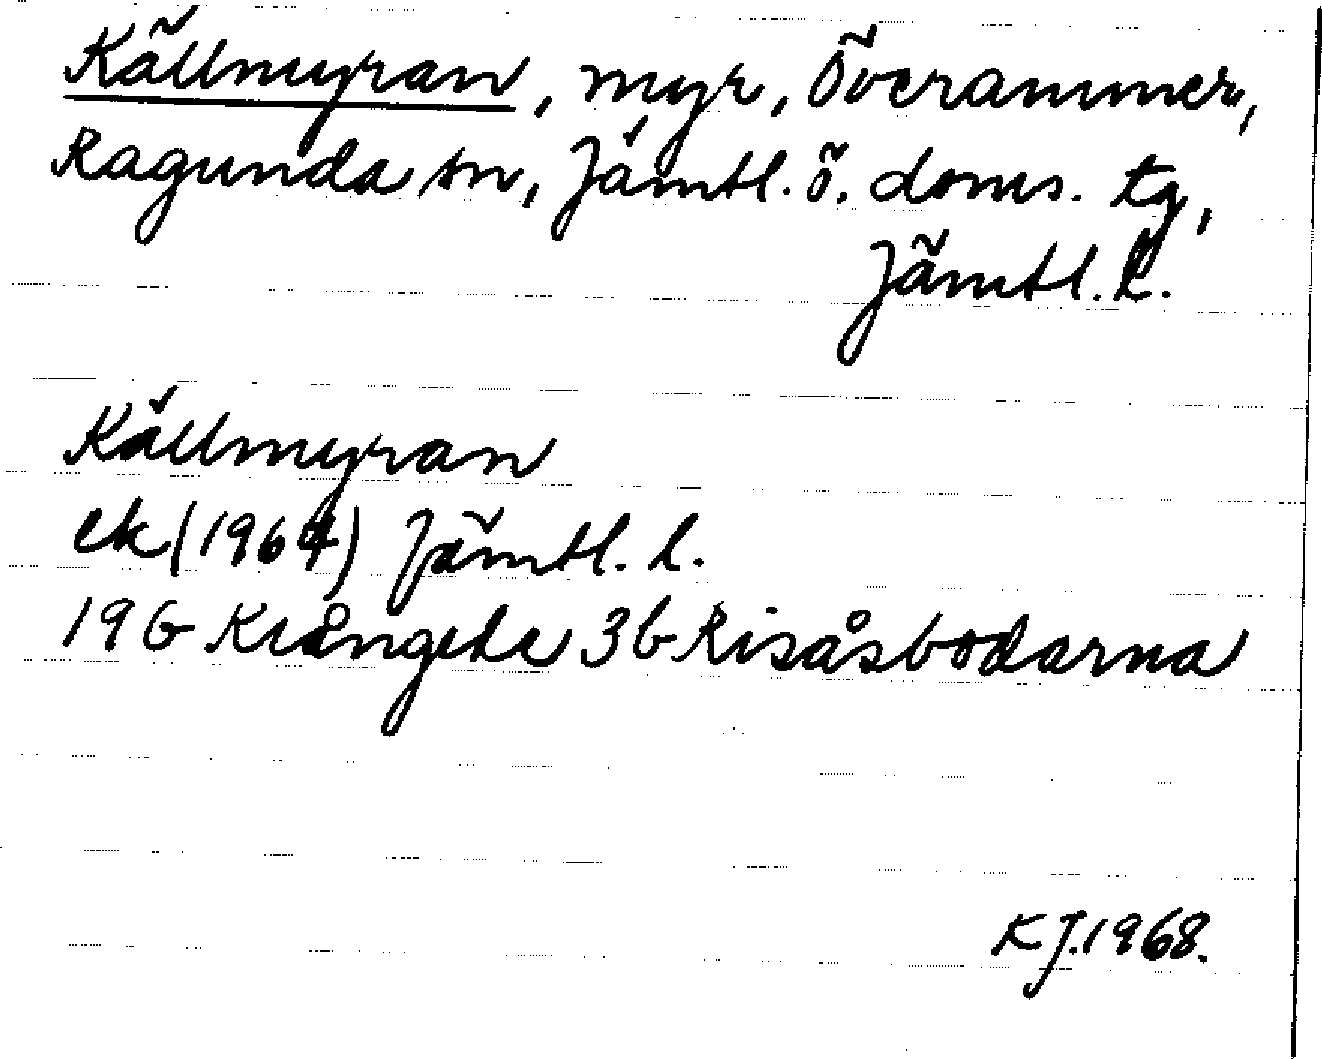 Källmyran, myr, Överammer,
Ragunda sn, Jämtl. ö. doms. tg,
Jämtl. l.
Källmyran
ek (1964) Jämtl. l.
19G Krångede 3b Risåsbodarna
K J. 1968.